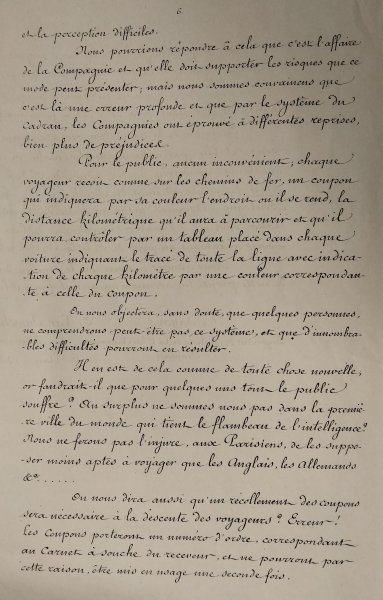 6.
et la perception difficiles.
Nous pourrions répondre à cela que c'est l'affaire
de la Compagnie et qu'elle doit supporter les risques que ce
mode peut présenter, mais nous sommes convaincus que
c'est là une erreur profonde et que par le système du
Cadran, les Compagnies ont éprouvé à différentes reprises,
bien plus de préjudices.
Pour le public, aucun inconvénient; chaque
voyageur reçoit comme sur les chemins de fer, un coupon
qui indiquera par sa couleur l'endroit où il se rend, la
distance kilométrique qu'il aura à parcourir et qu'il
pourra contrôler par un tableau placé dans chaque
voiture indiquant le tracé de toute la ligne avec indica-
tion de chaque kilomètre par une couleur correspondan-
te à celle du coupon.
On nous objectera, sans doute, que quelques personnes,
ne comprendrons peut-être pas ce système, et que d'innombra-
bles difficultés pourront en résulter.
Il en est de cela comme de toute chose nouvelle,
or faudrait-il que pour quelques uns tout le public
souffre? Au surplus ne sommes nous pas dans la premiè-
re ville du monde qui tient le flambeau de l'intelligence?
Nous ne ferons pas l'injure, aux Parisiens, de les suppo-
ser moins aptes à voyager que les Anglais, les Allemands
&a......
On nous dira aussi qu'un récollement des coupons
sera nécessaire à la descente des voyageurs? Erreur!
Les Coupons porteront un numéro d'ordre, correspondant
au Carnet à souche du receveur, et ne pourront par
cette raison, être mis en usage une seconde fois.